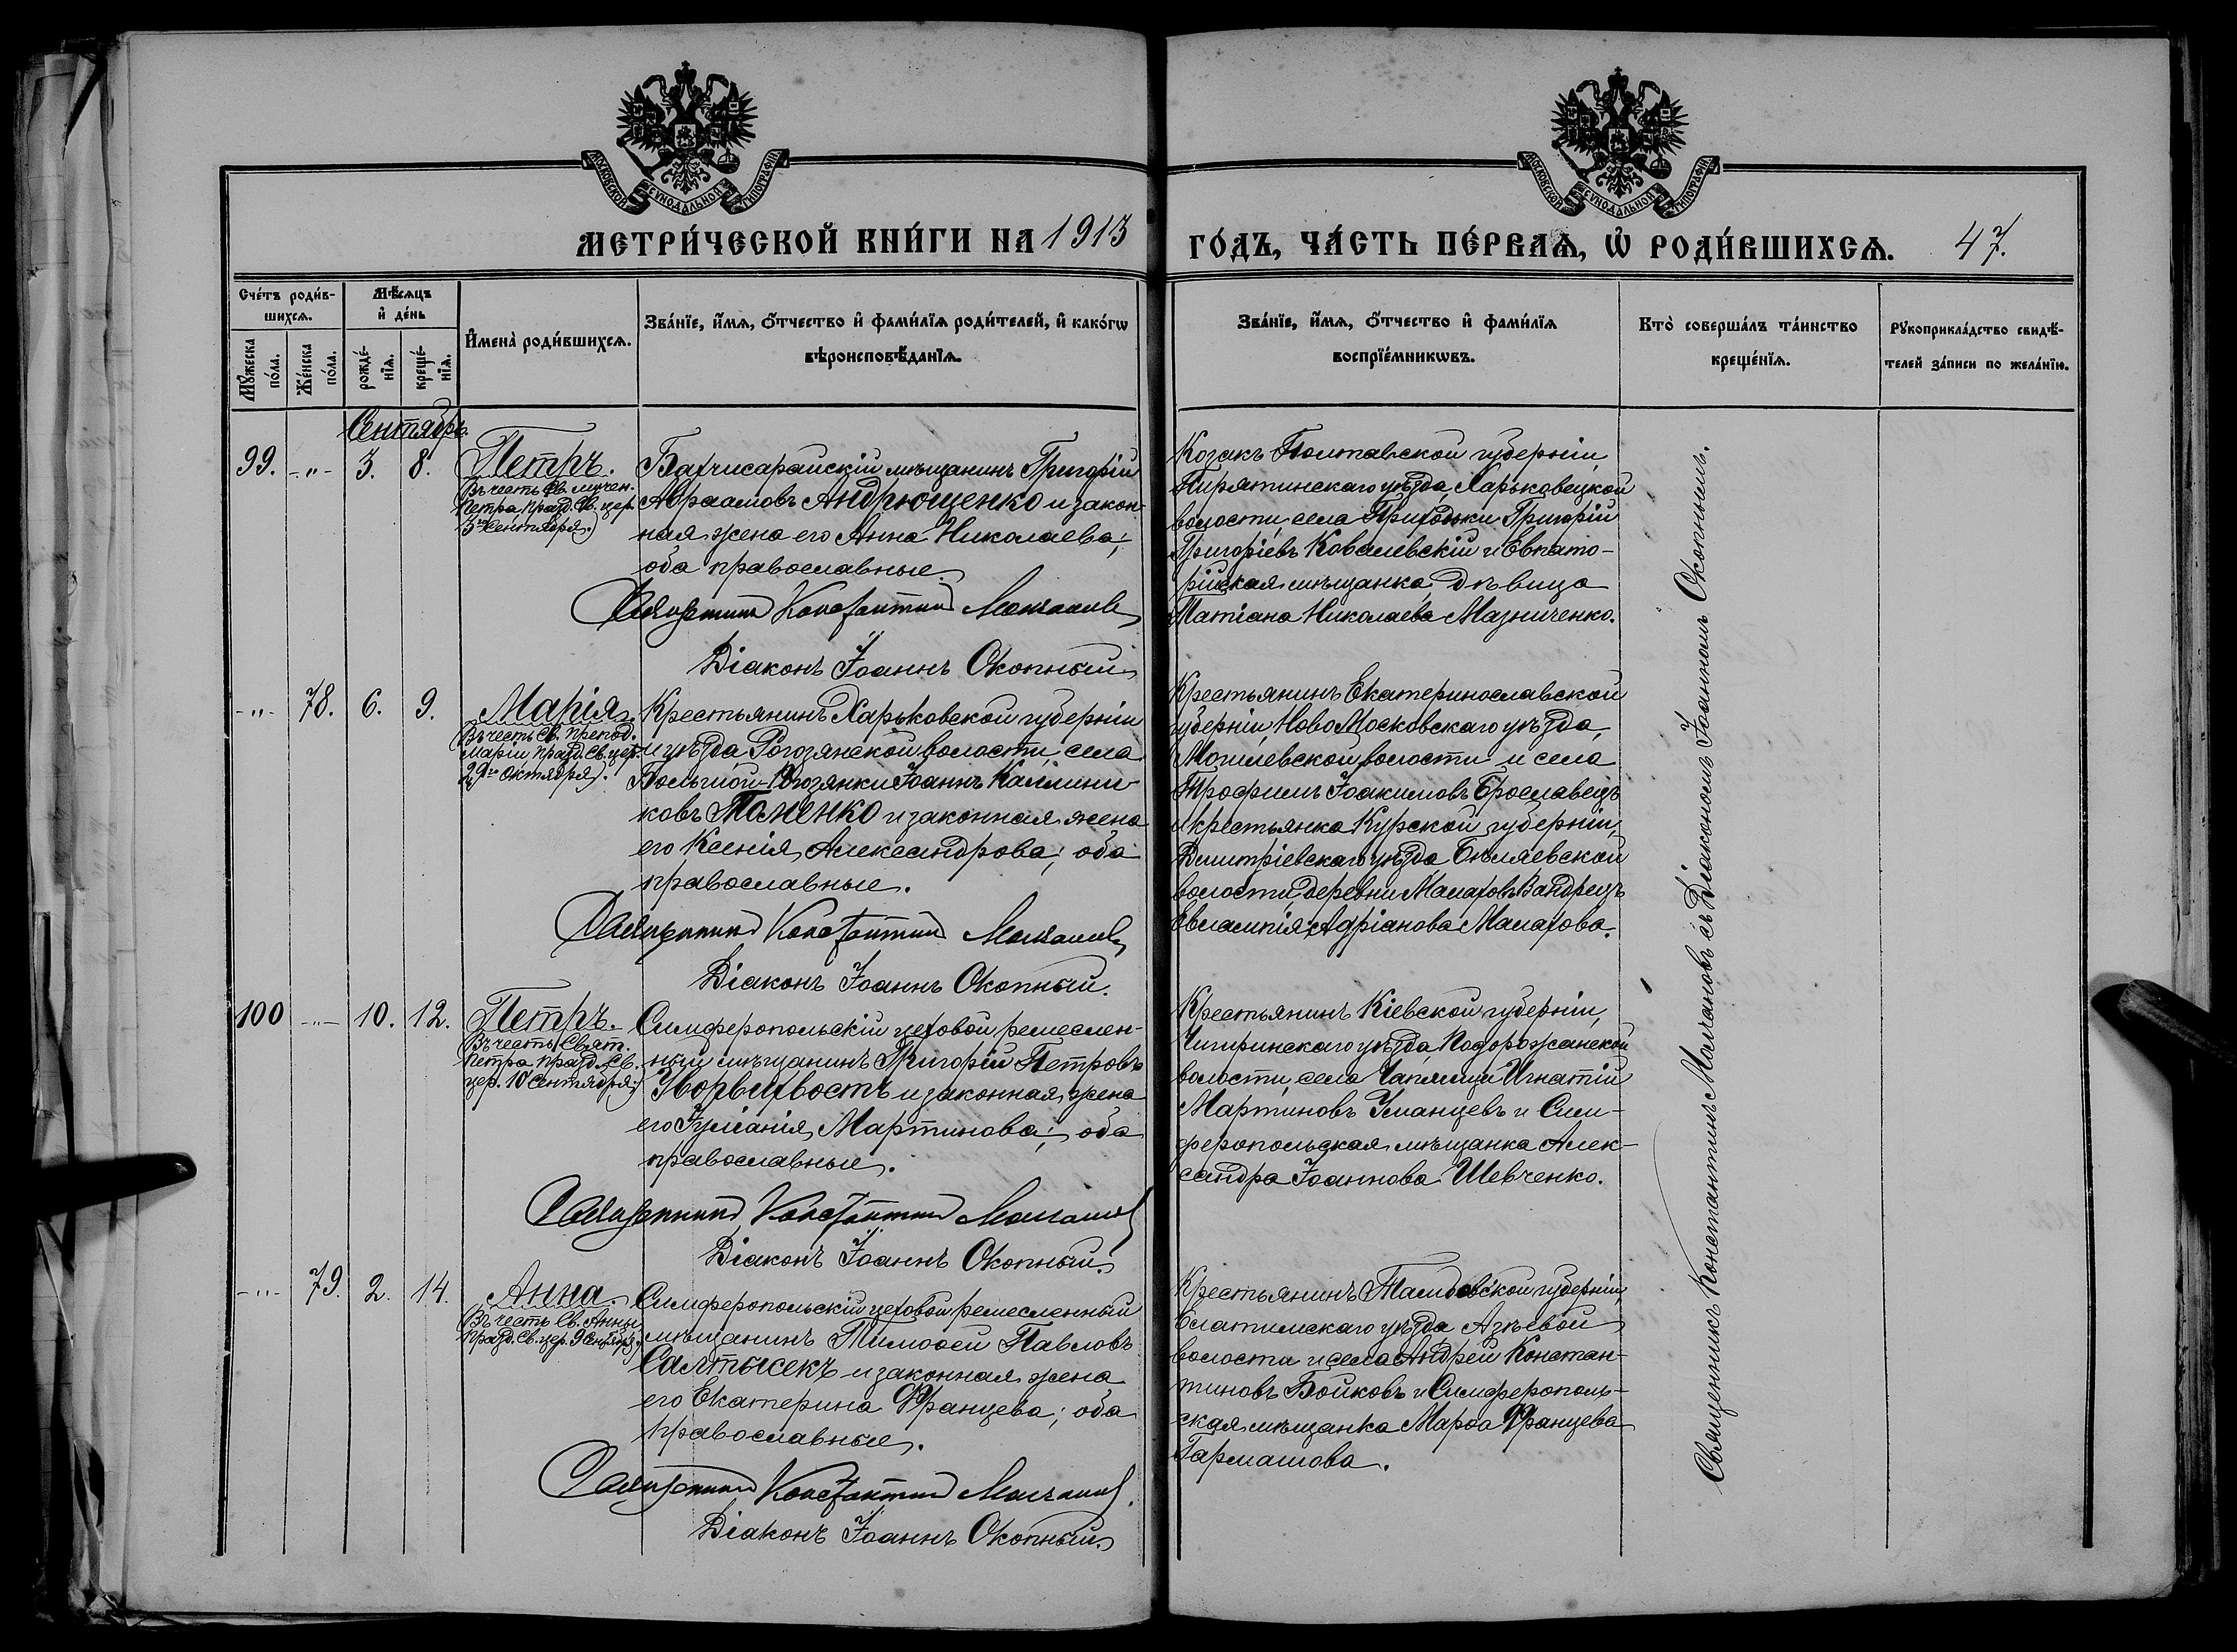 МОСКОВСКОЙ СѴНОДАЛЬНОЙ ТИПОГРАФІИ
МОСКОВСКОЙ СѴНОДАЛЬНОЙ ТИПОГРАФІИ
МЕТРИ́ЧЕСКОЙ КНИ́ГИ НА 1913
ГО́ДЪ, ЧА́СТЬ ПЕ́РВАѦ, Ѡ҆ РОДИ́ВШИХСѦ. 47.
Сче́тъ роди́в-
шихсѧ.
Мѣ́сѧцъ
и҆ де́нь
Мꙋ́жеска
по́ла.
Же́нска
по́ла.
рожде́-
нїѧ.
креще́-
нїѧ.
И҆мена̀ роди́вшихсѧ.
Зва́нїе, и҆́мѧ, ѻ҆́тчество и҆ фами́лїѧ роди́телей, и҆ како́гѡ
вѣроисповѣ́данїѧ.
Зва́нїе, и҆́мѧ, ѻ҆́тчество и҆ фами́лїѧ
воспрїе́мникѡвъ.
Кто̀ соверша́лъ та́инство
креще́нїѧ.
Рꙋкоприкла́дство свидѣ́-
телей за́писи по жела́нїю.
Сентябрь.
99. -"- 3. 8.
Петръ.
Въ честь Св. мучен.
Петра, празд. Св. цер.
3го Сентября.)
Бахчисарайскій мѣщанинъ Григорій
Авраамовъ Андрющенко и закон-
ная жена его Анна Николаева;
оба православные.
Священникъ Константинъ Молчановъ
Діаконъ Іоаннъ Окопный
Козакъ Полтавской губерніи,
Пирятинскаго уѣзда, Харьковецкой
волости, села Приходьки Григорій
Григоріевъ Ковалевскій и Евпато-
рійская мѣщанка, дѣвица
Татіана Николаева Мазниченко.
-"- 78. 6. 9.
Марія.
Въ честь Св. препод.
Маріи, празд. Св. цер.
29го Октября).
Крестьянинъ Харьковской губерніи
и уѣзда, Рогозянской волости, села
Польной-Рогозянки Іоаннъ Каллини-
ковъ Поменко и законная жена
его Ксенія Александрова; оба
православные.
Священникъ Константинъ Молчановъ
Діаконъ Іоаннъ Окопный.
Крестьянинъ Екатеринославской
губерніи, НовоМосковскаго уѣзда,
Могилевской волости и села
Трофимъ Іоакимовъ Брославецъ
и крестьянка Курской губерніи,
Дмитріевскаго уѣзда Бѣляевской
волости, деревни
Евлампія Адріанова Малахова.
100 -"- 10. 12.
Петръ.
Въ честь Свят.
Петра, празд. Св.
цер. 10 Сентября.)
Симферопольскій цеховой ремеслен-
ный мѣщанинъ Григорій Петровъ
Уворвихвостъ и законная жена
его Іуліанія Мартинова; оба
православные.
Священникъ Константинъ Молчановъ
Діаконъ Іоаннъ Окопный.
Крестьянинъ Кіевской губерніи,
Чигиринскаго уѣзда Подорожанской
волости, села Игнатій
Мартиновъ Уманцевъ и Сим-
феропольская мѣщанка Алек-
сандра Іоаннова Шевченко.
-"- 79. 2. 14.
Анна.
Въ честь Св. Анны,
празд. Св. цер. 9 Сентября.
Симферопольскій цеховой ремесленный
мѣщанинъ Тимоѳей Павловъ
Салтысекъ и законная жена
его Екатерина Францева; оба
православные.
Священникъ Константинъ Молчановъ.
Діаконъ Іоаннъ Окопный.
Крестьянинъ Тамбовской губерніи,
Елатимскаго уѣзда Азѣевой
волости и села Андрей Констан-
тиновъ Бойковъ и Симферополь-
ская мѣщанка Марѳа Францева
Гармашова.
Священникъ Константинъ Молчановъ съ Діакономъ Іоанномъ Окопнымъ.